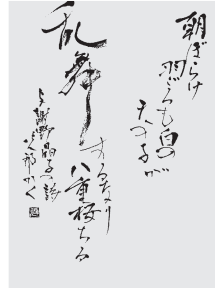 朝ぼらけ
羽ごろも白の
天の子が
乱舞
するなり
八重桜ちる
与謝野晶子の詩
かく